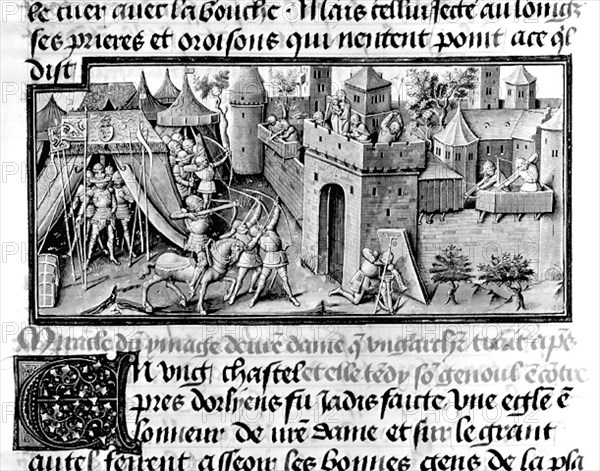 le tuer auec la bouche · Mais cellui iecte au longz
ses prieres et oroisons qui nentent point a ce q̄l
dist
Miracle du ymage de nr̄e dame q̄ vng archr̄ tirāt
En vng chastel et elle tēdy sō genoul ēcōtre
pres dorlyens fu iadis faicte vne egl̄e ē
lonneur de nr̄e dame et sur le grant
autel firent asseoir les bonnes gens de la pla